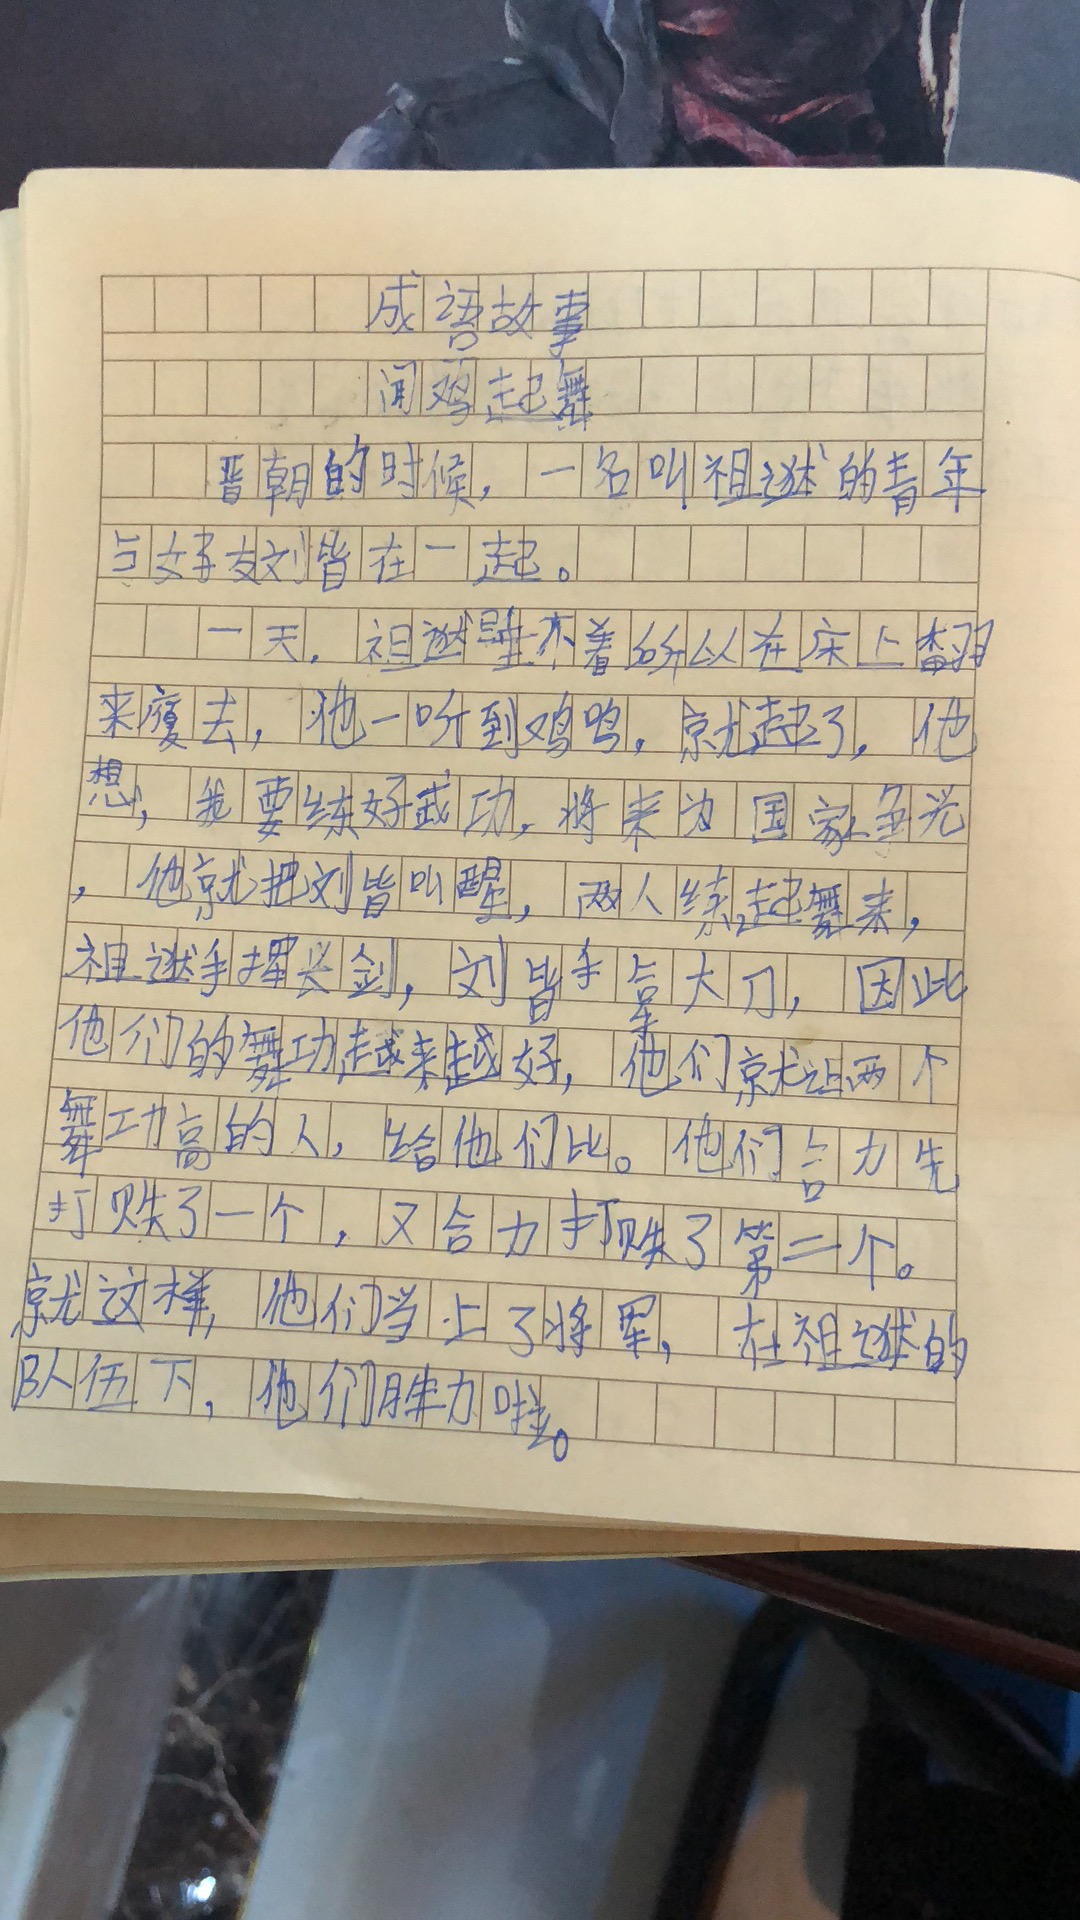 成语故事
闻鸡起舞
晋朝的时候，一名叫祖逖的青年
与好友刘皆在一起。
一天，祖逖睡不着所以在床上翻
来覆去，他一听到鸡鸣，就起了，他
想，我要练好武功，将来为国家争光
，他就把刘皆叫醒，两人练起舞来，
祖逖手挥长剑，刘皆手拿大刀，因此
他们的舞功越来越好，他们就让两个
舞功高的人，给他们比。他们合力先
打败了一个，又合力打败了第二个。
就这样，他们当上了将军，在祖逖的
队伍下，他们胜力啦。